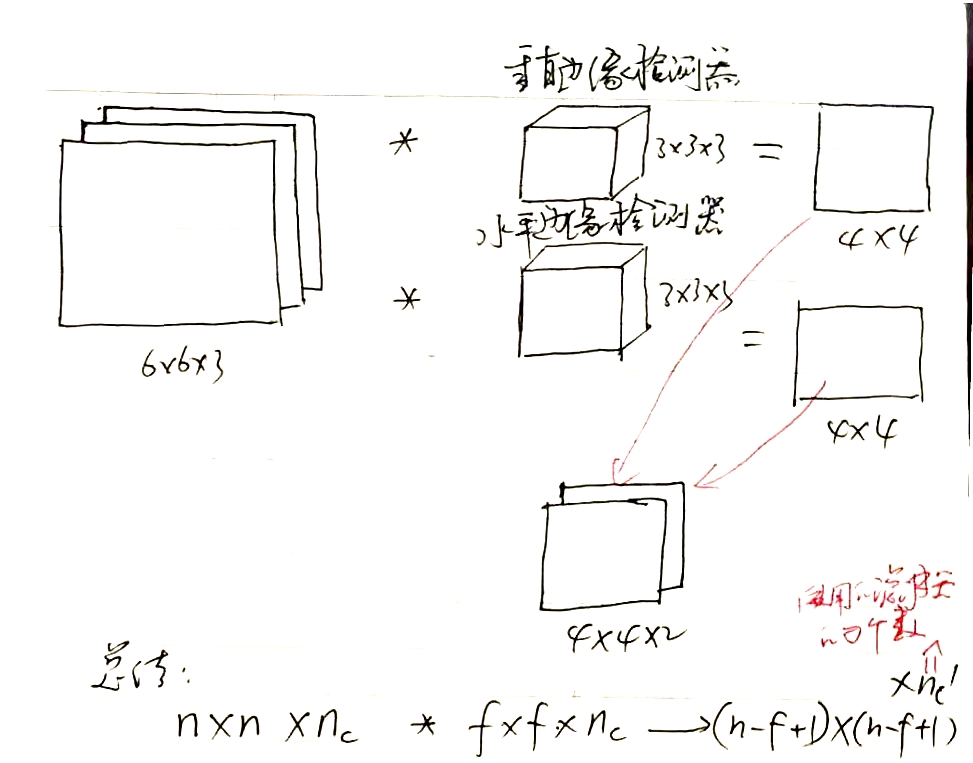 垂直边缘检测器
* 3×3×3 =
4×4
水平边缘检测器
* 3×3×3 =
6×6×3
4×4
4×4×2
使用的滤波器
的个数
⇑
总结:
×nc'
n×n×nc * f×f×nc ⟶(n-f+1)×(n-f+1)